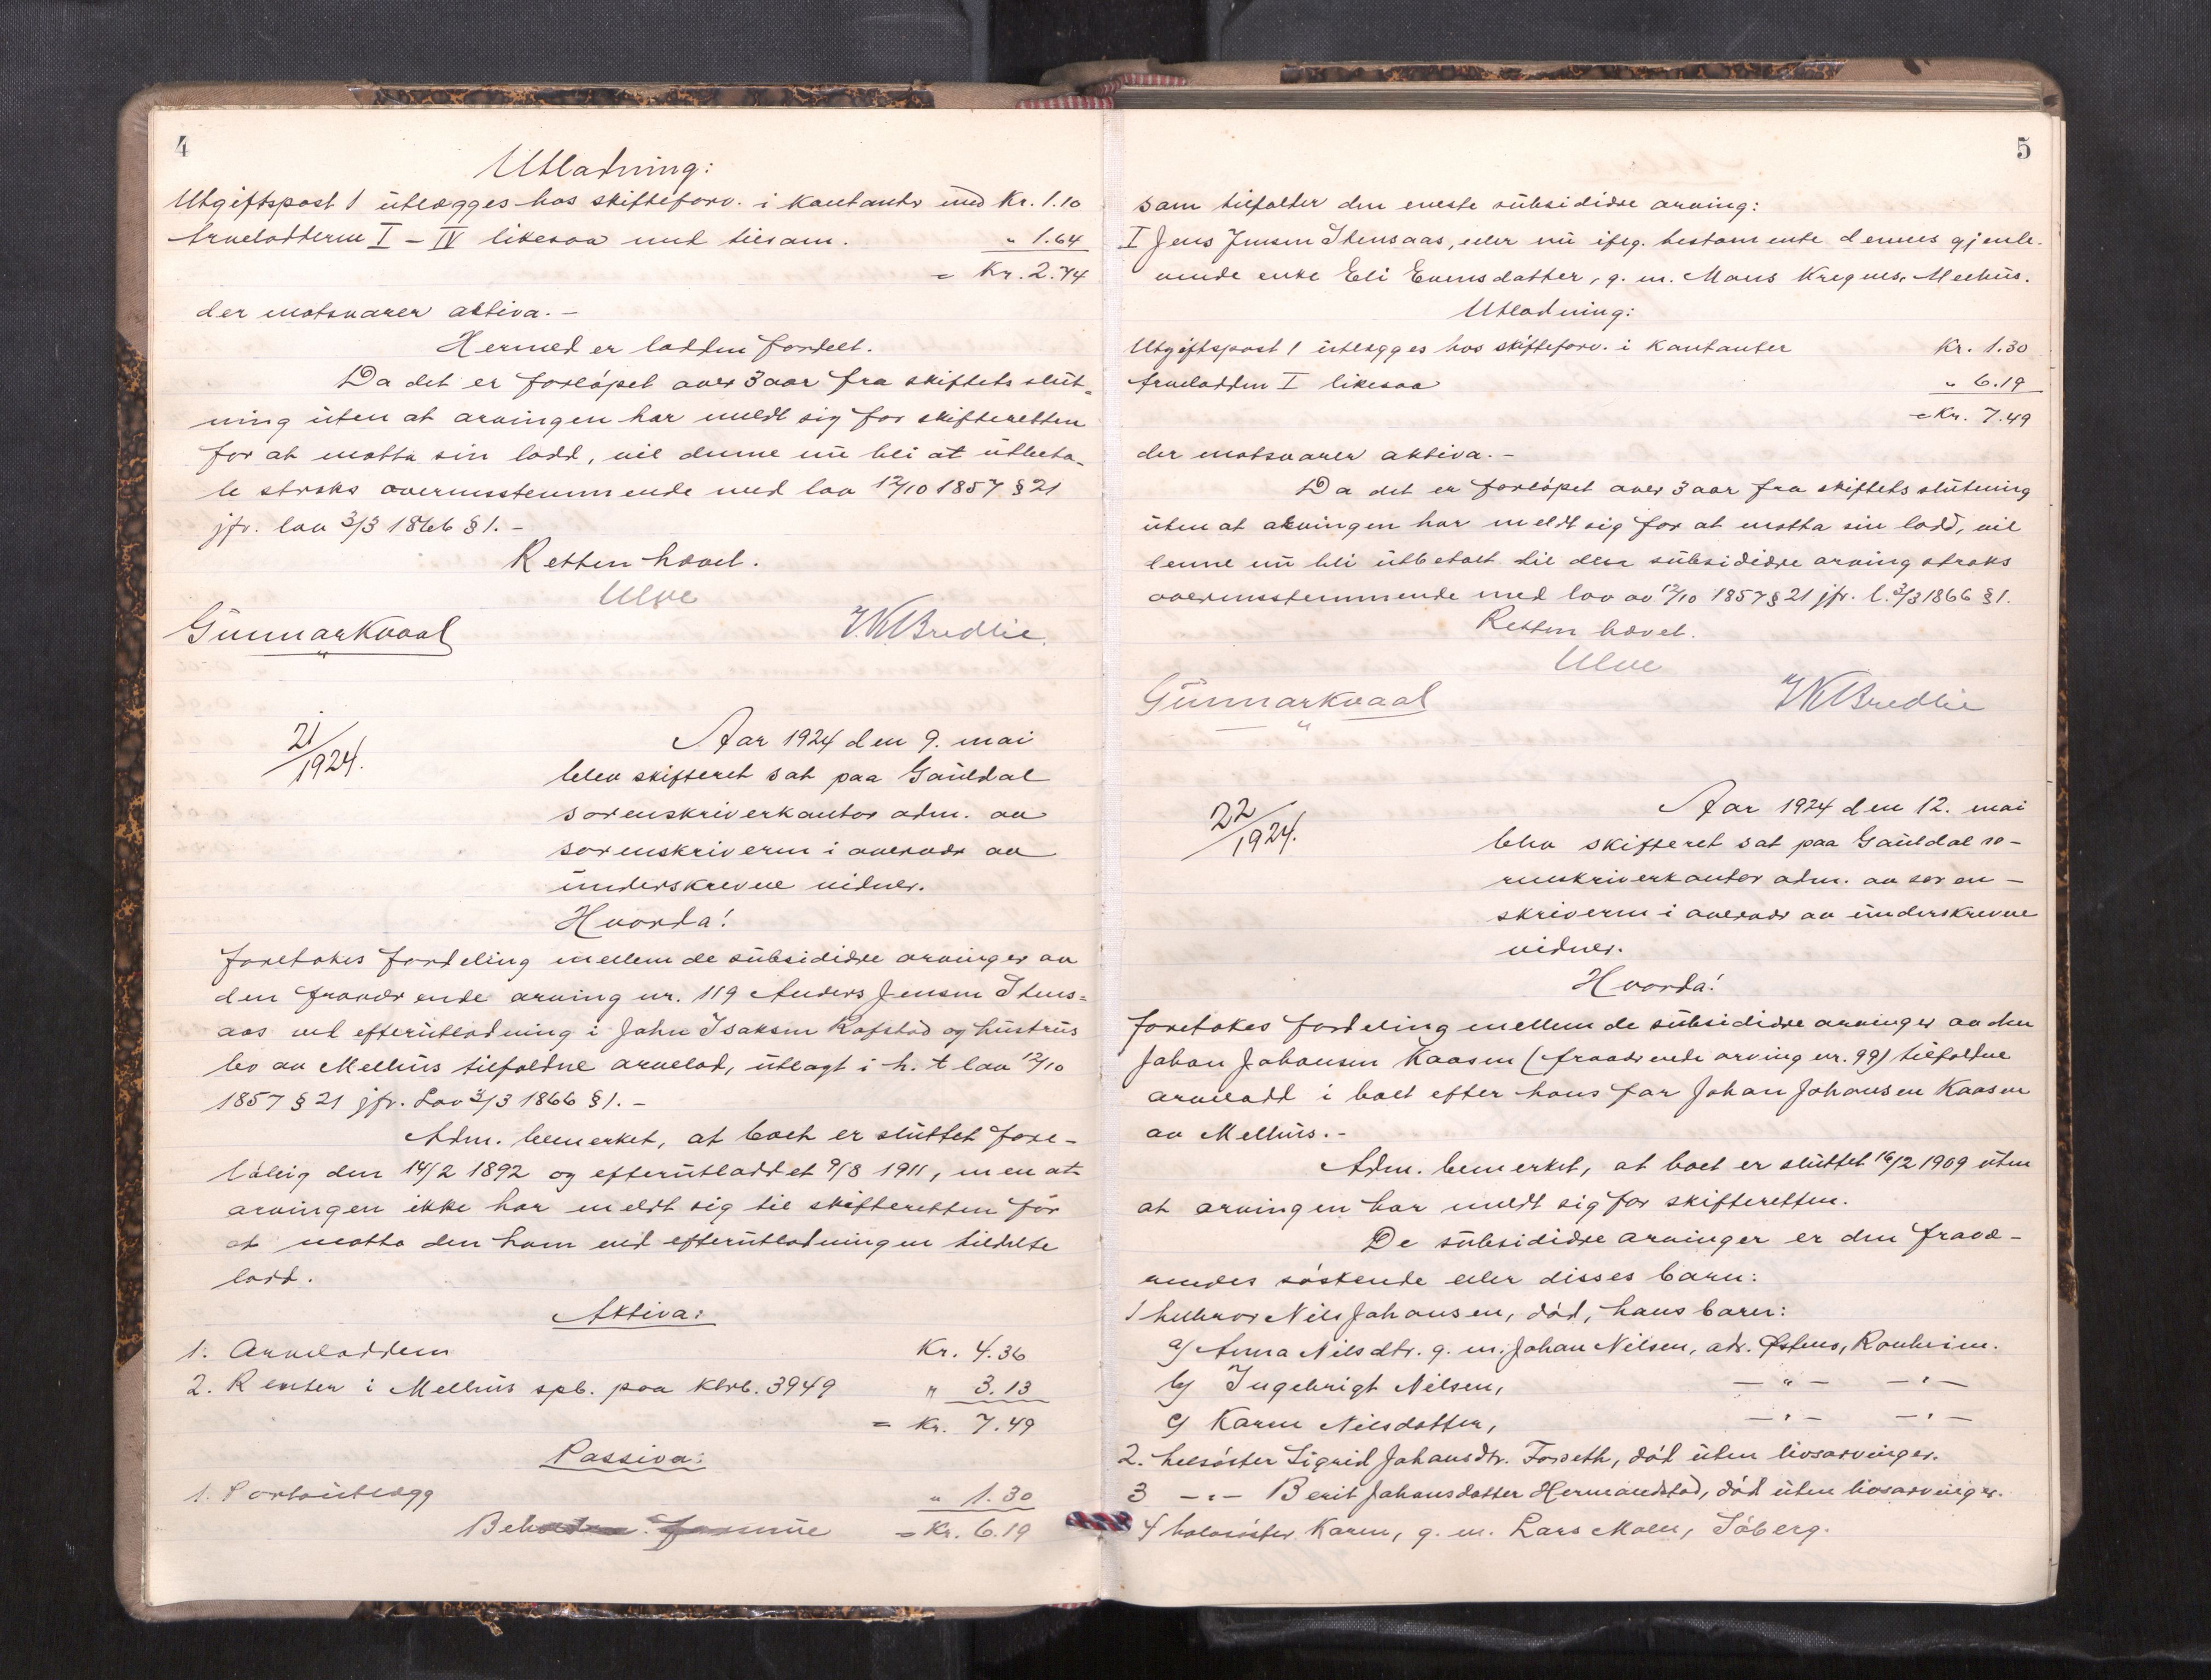 4
Utlodning:
Utgiftspost 1 utlægges hos skifteforv. i kontanter med Kr. 1.10
Arveloddern I - IV likesaa med tilsam. " 1.64
= Kr. 2.74
der motsvarer aktiva. -
Hermed er lodden fordelt.
Da det er forløpet over 3 aar fra skiftets slut-
ning uten at arvingen har meldt sig for skifteretten
for at motta sin lodd, vil denne nu bli at utbeta-
le straks overensstemmende med lov 12/10 1857 § 21
jfr. lov 3/3 1866 § 1. -
Retten hævet.
Ulve
Gunnar Kvaal
21/1924.
Aar 1924 den 9. mai
blev skifteret sat paa Gauldal
sorenskriverkontor adm. av
sorenskriveren i overvær av
underskrevne vidner.
Hvorda!
foretokes fordeling mellem de subsidiære arvinger av
den fraværende arving nr. 119 Anders Jensen Stens=
aas ved efterutlodning i John Isaksen Kofstad og hustrus
bo av Melhus tilfaldne arvelod, utlagt i h. t lov 12/10
1857 § 21 jfr. Lov 3/3 1866 § 1. -
Adm. bemerket, at boet er sluttet fore-
løbig den 14/2 1892 og efterutloddet 9/8 1911, men at
arvingen ikke har meldt sig til skifteretten for
at motta den ham ved efterutlodningen tildelte
lodd.
Aktiva:
1. Arvelodden Kr. 4.36
2. Renter i Melhus spb. paa ktrb. 3949 " 3.13
= Kr. 7.49
Passiva:
1. Portoutlægg " 1.30
= Kr. 6.19
5
som tilfalder den eneste subsidiære arving:
I Jens Jensen Stensaas, eller nu ifølg. testamente dennes gjenle-
vende enke Eli Evensdatter, g. m. Mons Melhus.
Utlodning:
Utgiftspost 1 utlægges hos skifteforv. i kontanter Kr. 1.30
Arvelodden I likesaa " 6.19
= Kr. 7.49
der motsvarer aktiva. -
Da det er forløpet over 3 aar fra skiftets slutning
uten at arvingen har meldt sig for at motta sin lodd, vil
denne nu bli utbetalt til den subsidiære arving straks
overensstemmende med lov av 12/10 1857 § 21 jfr. l. 3/3 1866 § 1.
Retten hævet.
Ulve
Gunnar Kvaal
22/1924.
Aar 1924 den 12. mai
blev skifteret sat paa Gauldal so-
renskriverkontor adm. av soren-
skriveren i overvær av underskrevne
vidner.
Hvorda!
foretokes fordeling mellem de subsidiære arvinger av den
Johan Johansen Kaasen (fraværende arving nr. 99) tilfaldne
arvelodd i boet efter hans far Johan Johansen Kaasen
av Melhus. -
Adm. bemerket, at boet er sluttet 16/2 1909 uten
at arvingen har meldt sig for skifteretten.
De subsidiære arvinger er den fravæ-
rendes søskende eller disses barn:
1 helbror Nils Johansen, død, hans barn:
a) Anna Nilsdtr. g. m. Johan Nilsen, adr. Østens, Ranheim.
b) Ingebrigt Nilsen, - " - - " -
c) Karen Nilsdatter, - " - - " -
2. helsøster Sigrid Johansdtr. Forseth, død uten livsarvinger.
3 - " - Berit Johansdatter Hermandstad, død uten livsarvinger.
4 halvsøster Karen, g. m. Lars Moen, Søberg.